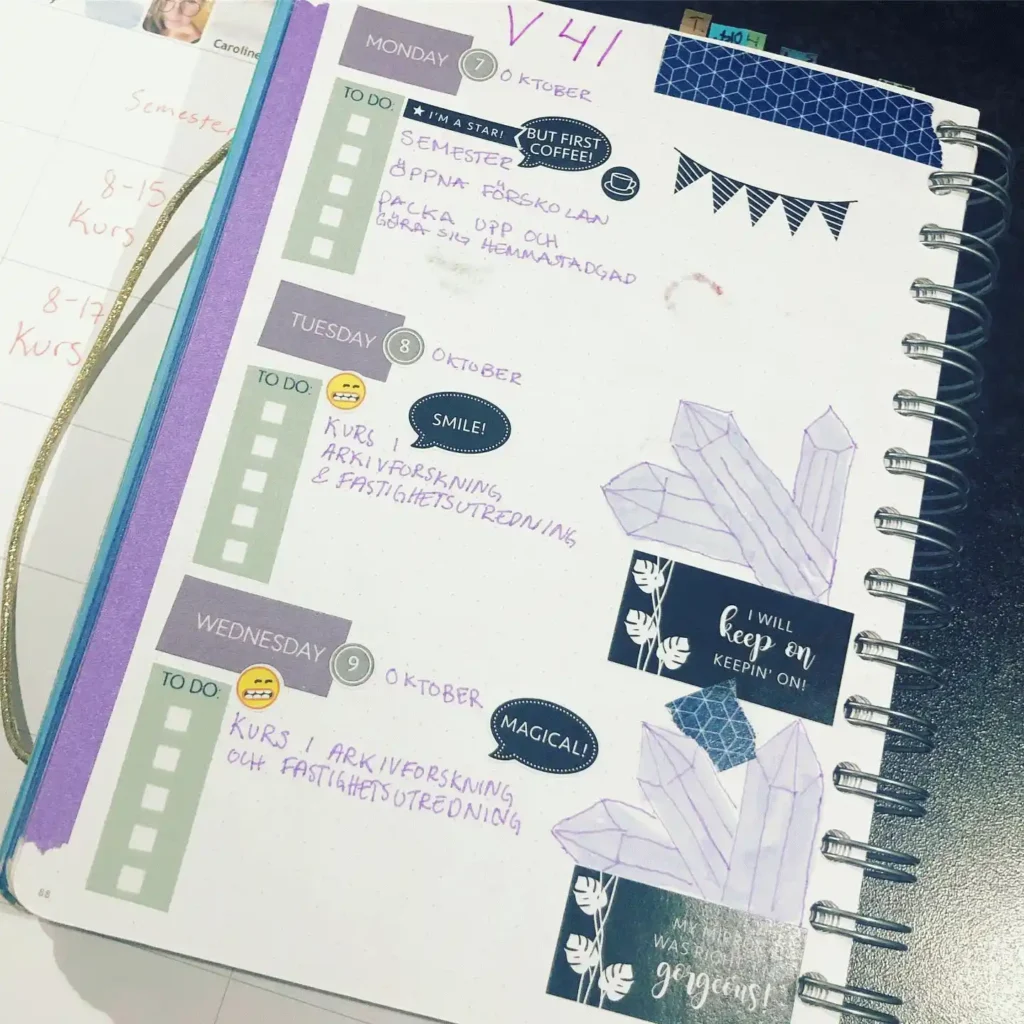 Caroline
Semester
8-15
Kurs
8-17
Kurs
V 41
MONDAY 7 OKTOBER
TO DO:
I'M A STAR!
BUT FIRST
COFFEE!
SEMESTER
ÖPPNA FÖRSKOLAN
PACKA UPP OCH
GÖRA SIG HEMMASTADGAD
TUESDAY 8 OKTOBER
TO DO:
SMILE!
KURS I
ARKIVFORSKNING
& FASTIGHETSUTREDNING
I WILL
keep on
KEEPIN' ON!
WEDNESDAY 9 OKTOBER
TO DO:
MAGICAL!
KURS I ARKIVFORSKNING
OCH FASTIGHETSUTREDNING
MY MIRROR
WAS RIGHT
gorgeous!